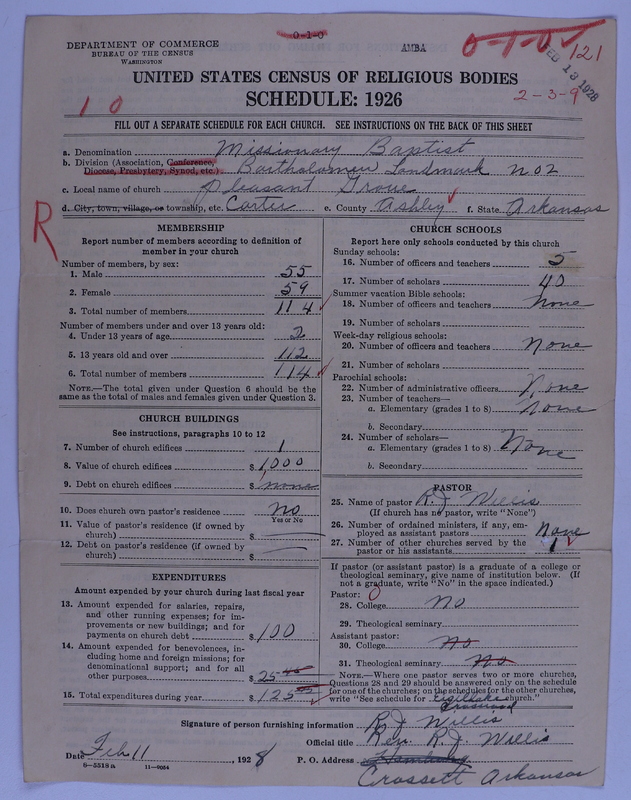 0-1-0
AMBA
0-1-0 121
FEB 13 1928
DEPARTMENT OF COMMERCE
BUREAU OF THE CENSUS
WASHINGTON
UNITED STATES CENSUS OF RELIGIOUS BODIES
SCHEDULE: 1926
1 0
2-3-9
FILL OUT A SEPARATE SCHEDULE FOR EACH CHURCH. SEE INSTRUCTIONS ON THE BACK OF THIS SHEET
a. Denomination Missionary Baptist
b. Division (Association, Conference, Diocese, Presbytery, Synod, etc.) Bartholomew Landmark No 2
c. Local name of church Pleasant Grove
d. City, town, village, or township, etc. Carter e. County Ashley f. State Arkansas
R
MEMBERSHIP
Report number of members according to definition of
member in your church
Number of members, by sex:
1. Male 55
2. Female 59
3. Total number of members 114
Number of members under and over 13 years old:
4. Under 13 years of age 2
5. 13 years old and over 112
6. Total number of members 114
NOTE.—The total given under Question 6 should be the
same as the total of males and females given under Question 3.
CHURCH BUILDINGS
See instructions, paragraphs 10 to 12
7. Number of church edifices 1
8. Value of church edifices $ 1,000
9. Debt on church edifices $ none
10. Does church own pastor's residence? No
Yes or No
11. Value of pastor's residence (if owned by
church) $
12. Debt on pastor's residence (if owned by
church) $
EXPENDITURES
Amount expended by church during last fiscal year
13. Amount expended for salaries, repairs,
and other running expenses; for im-
provements or new buildings; and for
payments on church debt $ 100
14. Amount expended for benevolences, in-
cluding home and foreign missions; for
denominational support; and for all
other purposes $ 25
15. Total expenditures during year $ 125
CHURCH SCHOOLS
Report here only schools conducted by this church
Sunday schools:
16. Number of officers and teachers 5
17. Number of scholars 40
Summer vacation Bible schools:
18. Number of officers and teachers none
19. Number of scholars
Week-day religious schools:
20. Number of officers and teachers None
21. Number of scholars
Parochial schools:
22. Number of administrative officers None
23. Number of teachers—
a. Elementary (grades 1 to 8) None
b. Secondary
24. Number of scholars—
a. Elementary (grades 1 to 8) None
b. Secondary
PASTOR
25. Name of pastor R. J. Willis
(If church has no pastor, write "None")
26. Number of ordained ministers, if any, em-
ployed as assistant pastors None
27. Number of other churches served by the
pastor or his assistants 1
If pastor (or assistant pastor) is a graduate of a college or
theological seminary, give name of institution below. (If
not a graduate, write "No" in the space indicated.)
Pastor: 0
28. College No
29. Theological seminary
Assistant pastor:
30. College No
31. Theological seminary No
NOTE.—Where one pastor serves two or more churches,
Questions 28 and 29 should be answered only on the schedule
for one of the churches; on the schedules for the other churches,
write "See schedule for church."
Signature of person furnishing information R. J. Willis
Official title Rev. R. J. Willis
Date Feb 11, 1928 P. O. Address Hamburg
6-5518a 11-9064
Crossett Arkansas